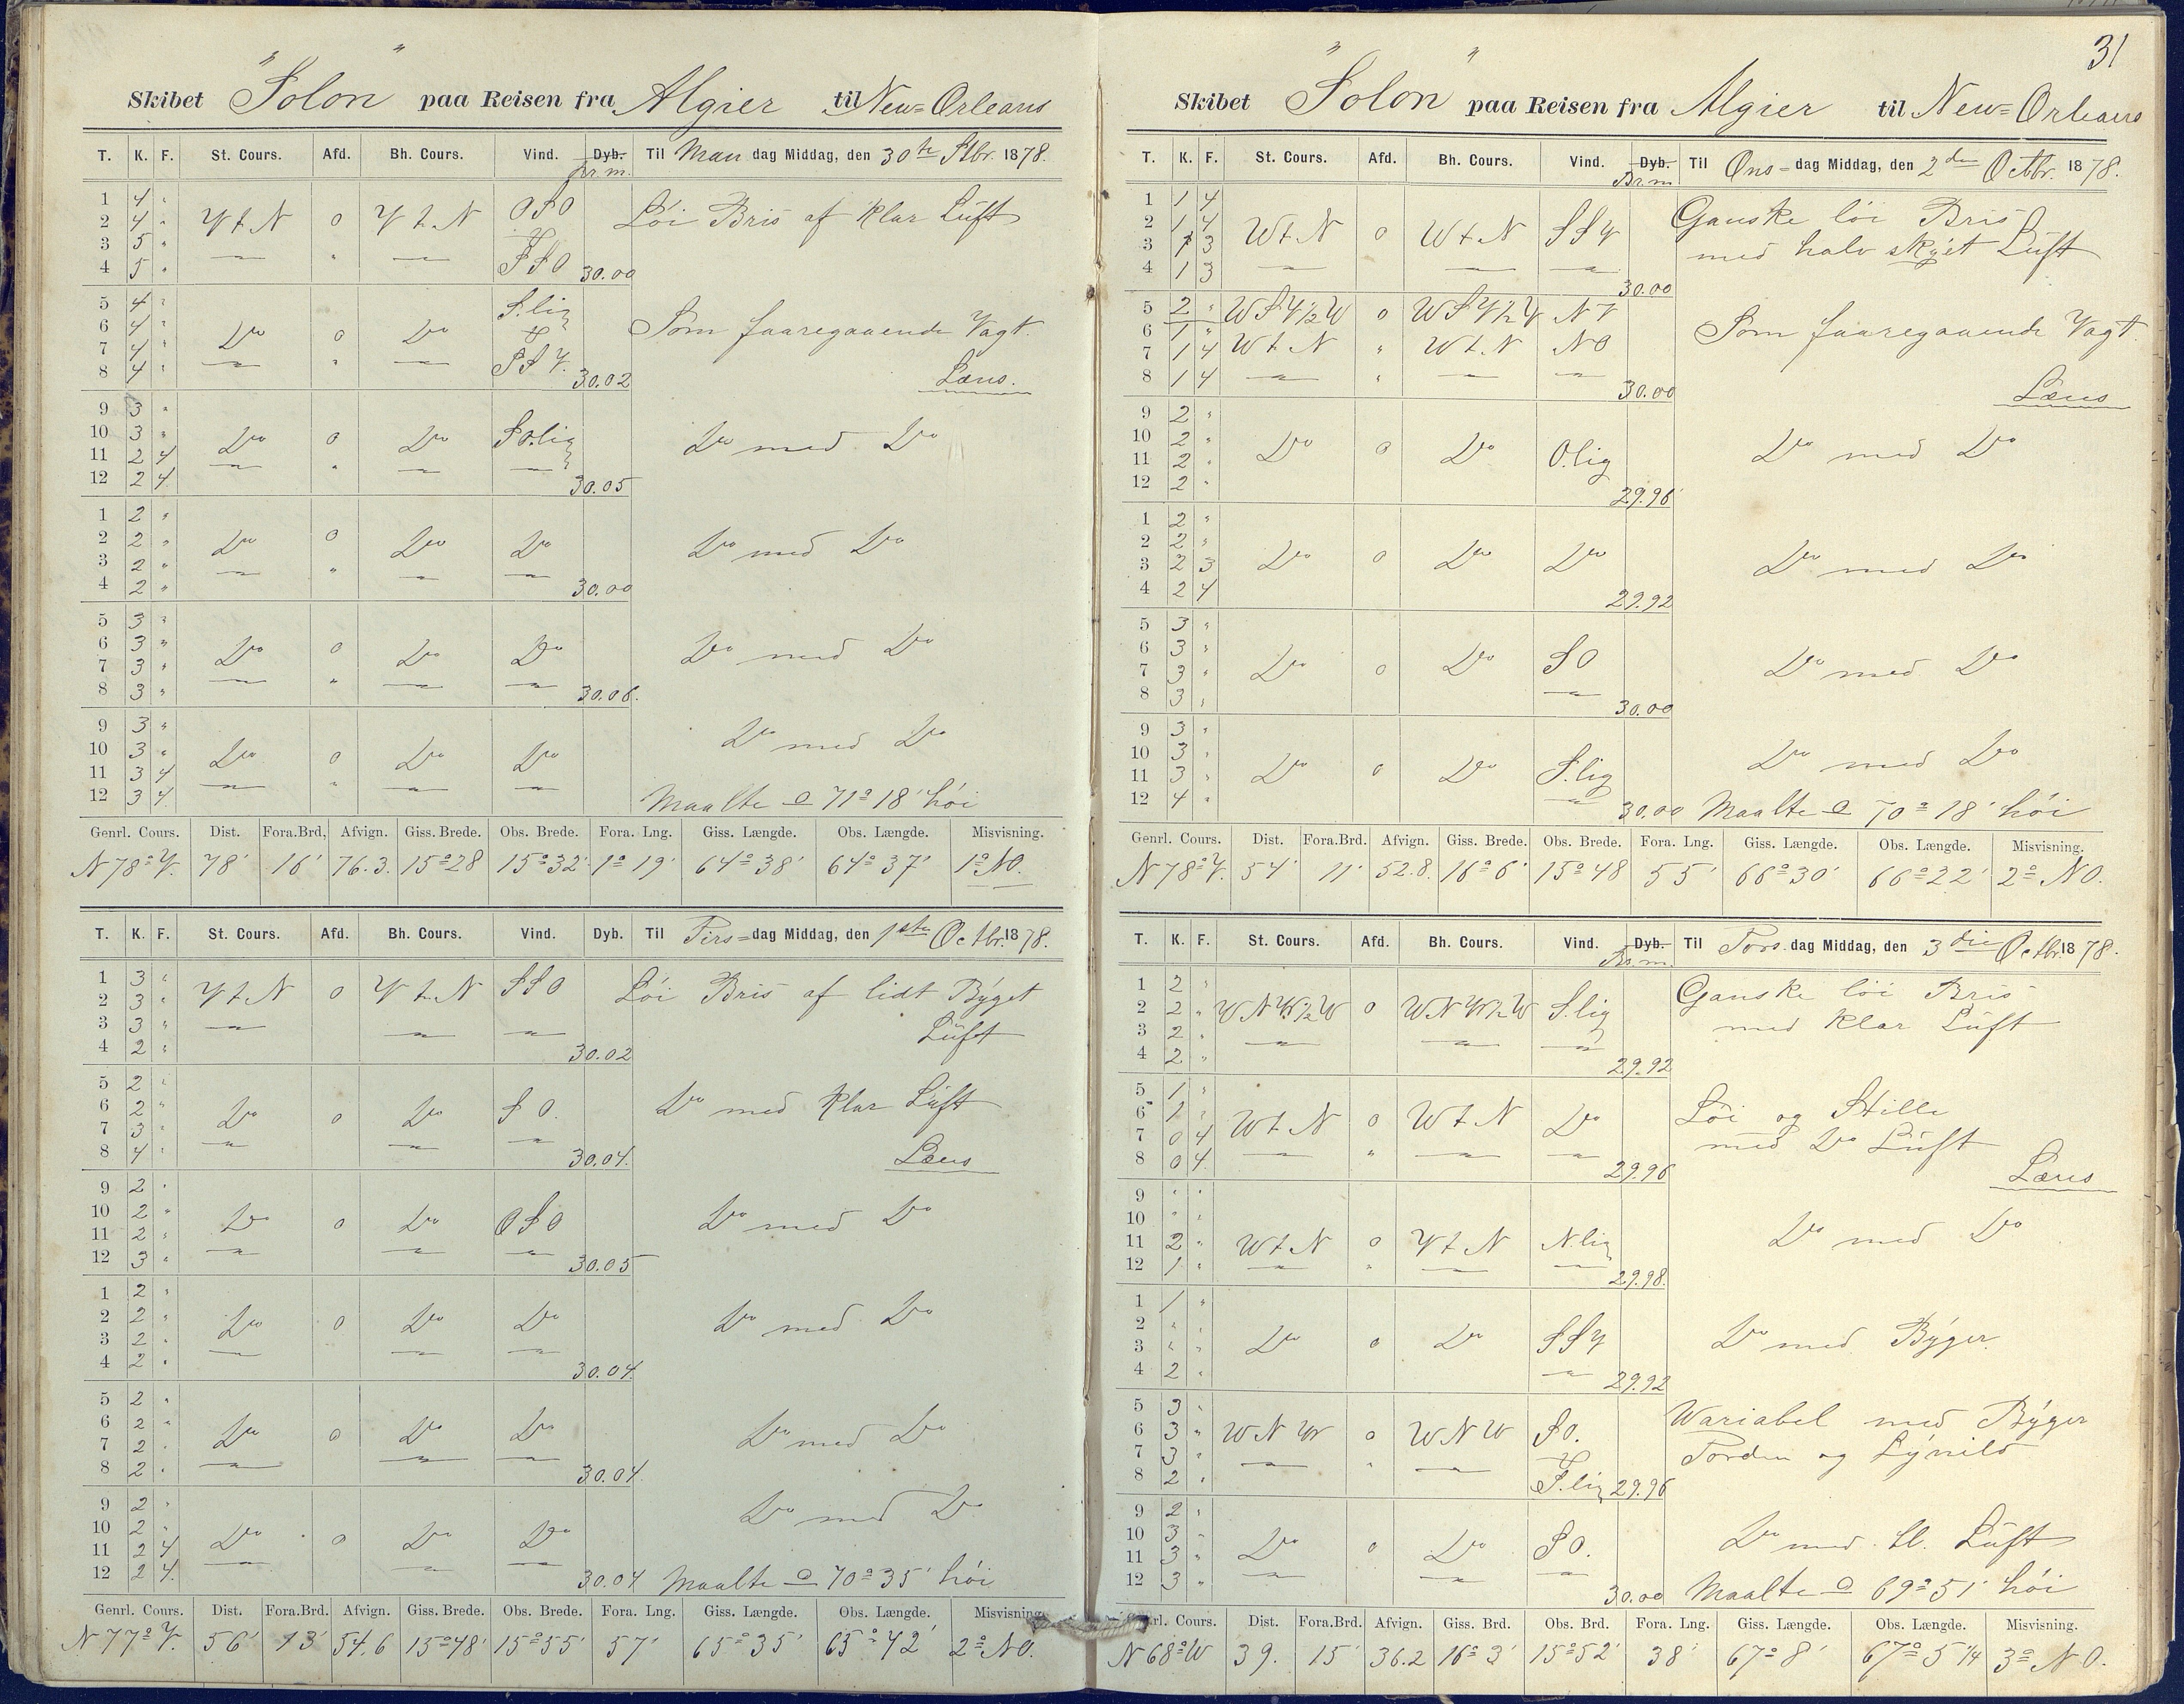 31
Skibet "Solon" paa Reisen fra Algier til New=Orleans
T. K. F. St. Cours. Afd. Bh. Cours. Vind. Dyb. Br m. Til Man dag Middag, den 30te Stbr. 1878.
1 4 "
2 4 " V t N 0 V t N OSO Löi Bris af klar Luft
3 5 " &
4 5 " SSO 30.00
5 4 " S.lig
6 4 " Do 0 Do & Som faaregaaende Vagt.
7 4 "
8 4 " SSV. 30.02 Læns.
9 3 "
10 3 " Do 0 Do SO.lig Do med Do
11 2 4
12 2 4 30.05
1 2 "
2 2 " Do 0 Do Do Do med Do
3 2 "
4 2 " 30.00
5 3 "
6 3 " Do 0 Do Do Do med Do
7 3 "
8 3 " 30.06.
9 3 "
10 3 " Do 0 Do Do Do med Do
11 3 4
12 3 4 Maalte 71° 18' höi
Genrl. Cours. Dist. Fora.Brd, Afvign. Giss. Brede. Obs. Brede. Fora. Lng. Giss. Længde. Obs. Længde. Misvisning.
N 78° V. 78' 16' 76.3. 15° 28 15° 32' 1° 19' 64° 38' 64° 37' 1° NO.
T. K. F. St. Cours. Afd. Bh. Cours. Vind. Dyb. Til Tirs=dag Middag, den 1ste Octbr. 1878.
1 3 "
2 3 " V t N 0 V t N SSO Löi Bris af lidt Byget
3 3 " Luft
4 2 " 30.02
5 2 "
6 2 " Do 0 Do SO. Do med klar Luft
7 3 "
8 4 " 30.04. Læns
9 2 "
10 2 " Do 0 Do OSO Do med Do
11 2 "
12 3 " 30.05
1 2 "
2 2 " Do 0 Do Do Do med Do
3 2 "
4 2 " 30.04.
5 2 "
6 2 " Do 0 Do Do Do med Do
7 2 "
8 2 " 30.04
9 2 " Do med Do
10 2 " Do 0 Do Do
11 2 4
12 2 4 30.04 Maalte 70° 35' höi
Genrl. Cours. Dist. Fora.Brd. Afvign. Giss. Brede. Obs. Brede. Fora. Lng. Giss. Længde. Obs. Længde. Misvisning.
N 77° V. 56' 13' 54.6 15° 48' 15° 55' 57' 65° 35' 65° 42' 2° NO.
Skibet "Solon" paa Reisen fra Algier til New=Orleans
T. K. F. St. Cours. Afd. Bh. Cours. Vind. Dyb. Br.m Til Ons=dag Middag, den 2den Octbr. 1878.
1 1 4 Ganske löi Bris
2 1 4 W t N 0 W t N SSV med halv skyet Luft
3 1 3
4 1 3 30.00
5 2 " WSV½W 0 WSV½V NV
6 1 " Som faaregaaende Vagt.
7 1 4 W t N " W t N NO
8 1 4 30.00 Læns
9 2 "
10 2 " Do 0 Do O.lig Do med Do
11 2 "
12 2 " 29.96
1 2 "
2 2 " Do 0 Do Do Do med Do
3 2 3
4 2 4 29.92
5 3 "
6 3 " Do 0 Do SO Do med Do
7 3 "
8 3 " 30.00
9 3 "
10 3 " Do 0 Do S.lig Do med Do
11 3 "
12 4 " 30.00 Maalte 70° 18' höi
Genrl. Cours. Dist. Fora.Brd. Afvign. Giss. Brede. Obs. Brede. Fora. Lng. Giss. Længde. Obs. Længde. Misvisning.
N 78° V. 54' 11' 52.8. 16° 6' 15° 48 55' 66° 30' 66° 22' 2° NO.
T. K. F. St. Cours. Afd. Bh. Cours. Vind. Dyb. Br.m. Til Tors.dag Middag, den 3die Octbr. 1878.
1 2 " Ganske löi Bris
2 2 " WNW½W 0 WNW½W S.lig med klar Luft
3 2 "
4 2 " 29.92
5 1 "
6 1 " W t N 0 W t N Do Löi og Stille
7 0 4 med Do Luft
8 0 4 29.96 Læns
9 " "
10 " " Do med Do
11 2 " W t N 0 V t N N.lig
12 1 " 29.98.
1 1 "
2 " "
3 " " Do 0 Do SSV Do med Byger.
4 2 " 29.92
5 3 " Wariabel med Byger
6 3 " WNW 0 WNW SO. Torden og Lynild
7 3 " &
8 2 " S.lig 29.96
9 2 "
10 3 " Do 0 Do SO. Do med kl. Luft
11 3 "
12 3 " 30.00 Maalte 69° 51' höi
Cours. Dist. Fora.Brd. Afvign. Giss. Brd. Obs. Brd. Fora. Lng. Giss. Længde. Obs. Længde. Misvisning.
N 68° W 39. 15' 36.2 16° 3' 15° 52' 38' 67° 8' 67° 5'¼ 3° NO.